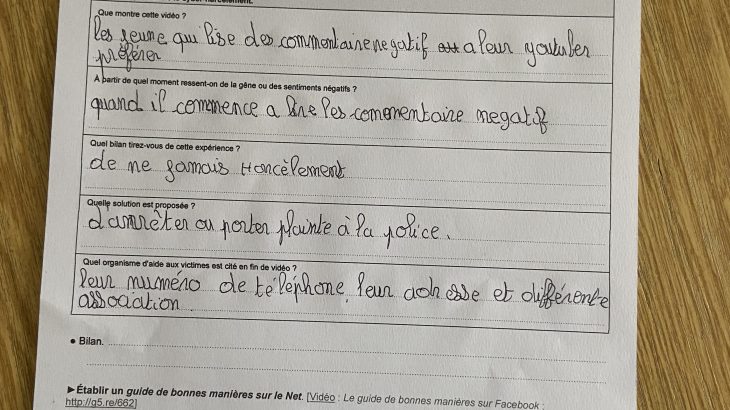 harcèlement.
Que montre cette vidéo ?
les jeune qui lise des commentaire negatif a leur youtuber
préférer
À partir de quel moment ressent-on de la gêne ou des sentiments négatifs ?
quand il commence a lire les commentaire negatif
Quel bilan tirez-vous de cette expérience ?
de ne jamais Harcèlement
Quelle solution est proposée ?
d'arrêter ou porter plainte à la police.
Quel organisme d'aide aux victimes est cité en fin de vidéo ?
leur numéro de téléphone, leur adresse et différente
association
● Bilan.
►Établir un guide de bonnes manières sur le Net. [Vidéo : Le guide de bonnes manières sur Facebook :
http://g5.re/662]